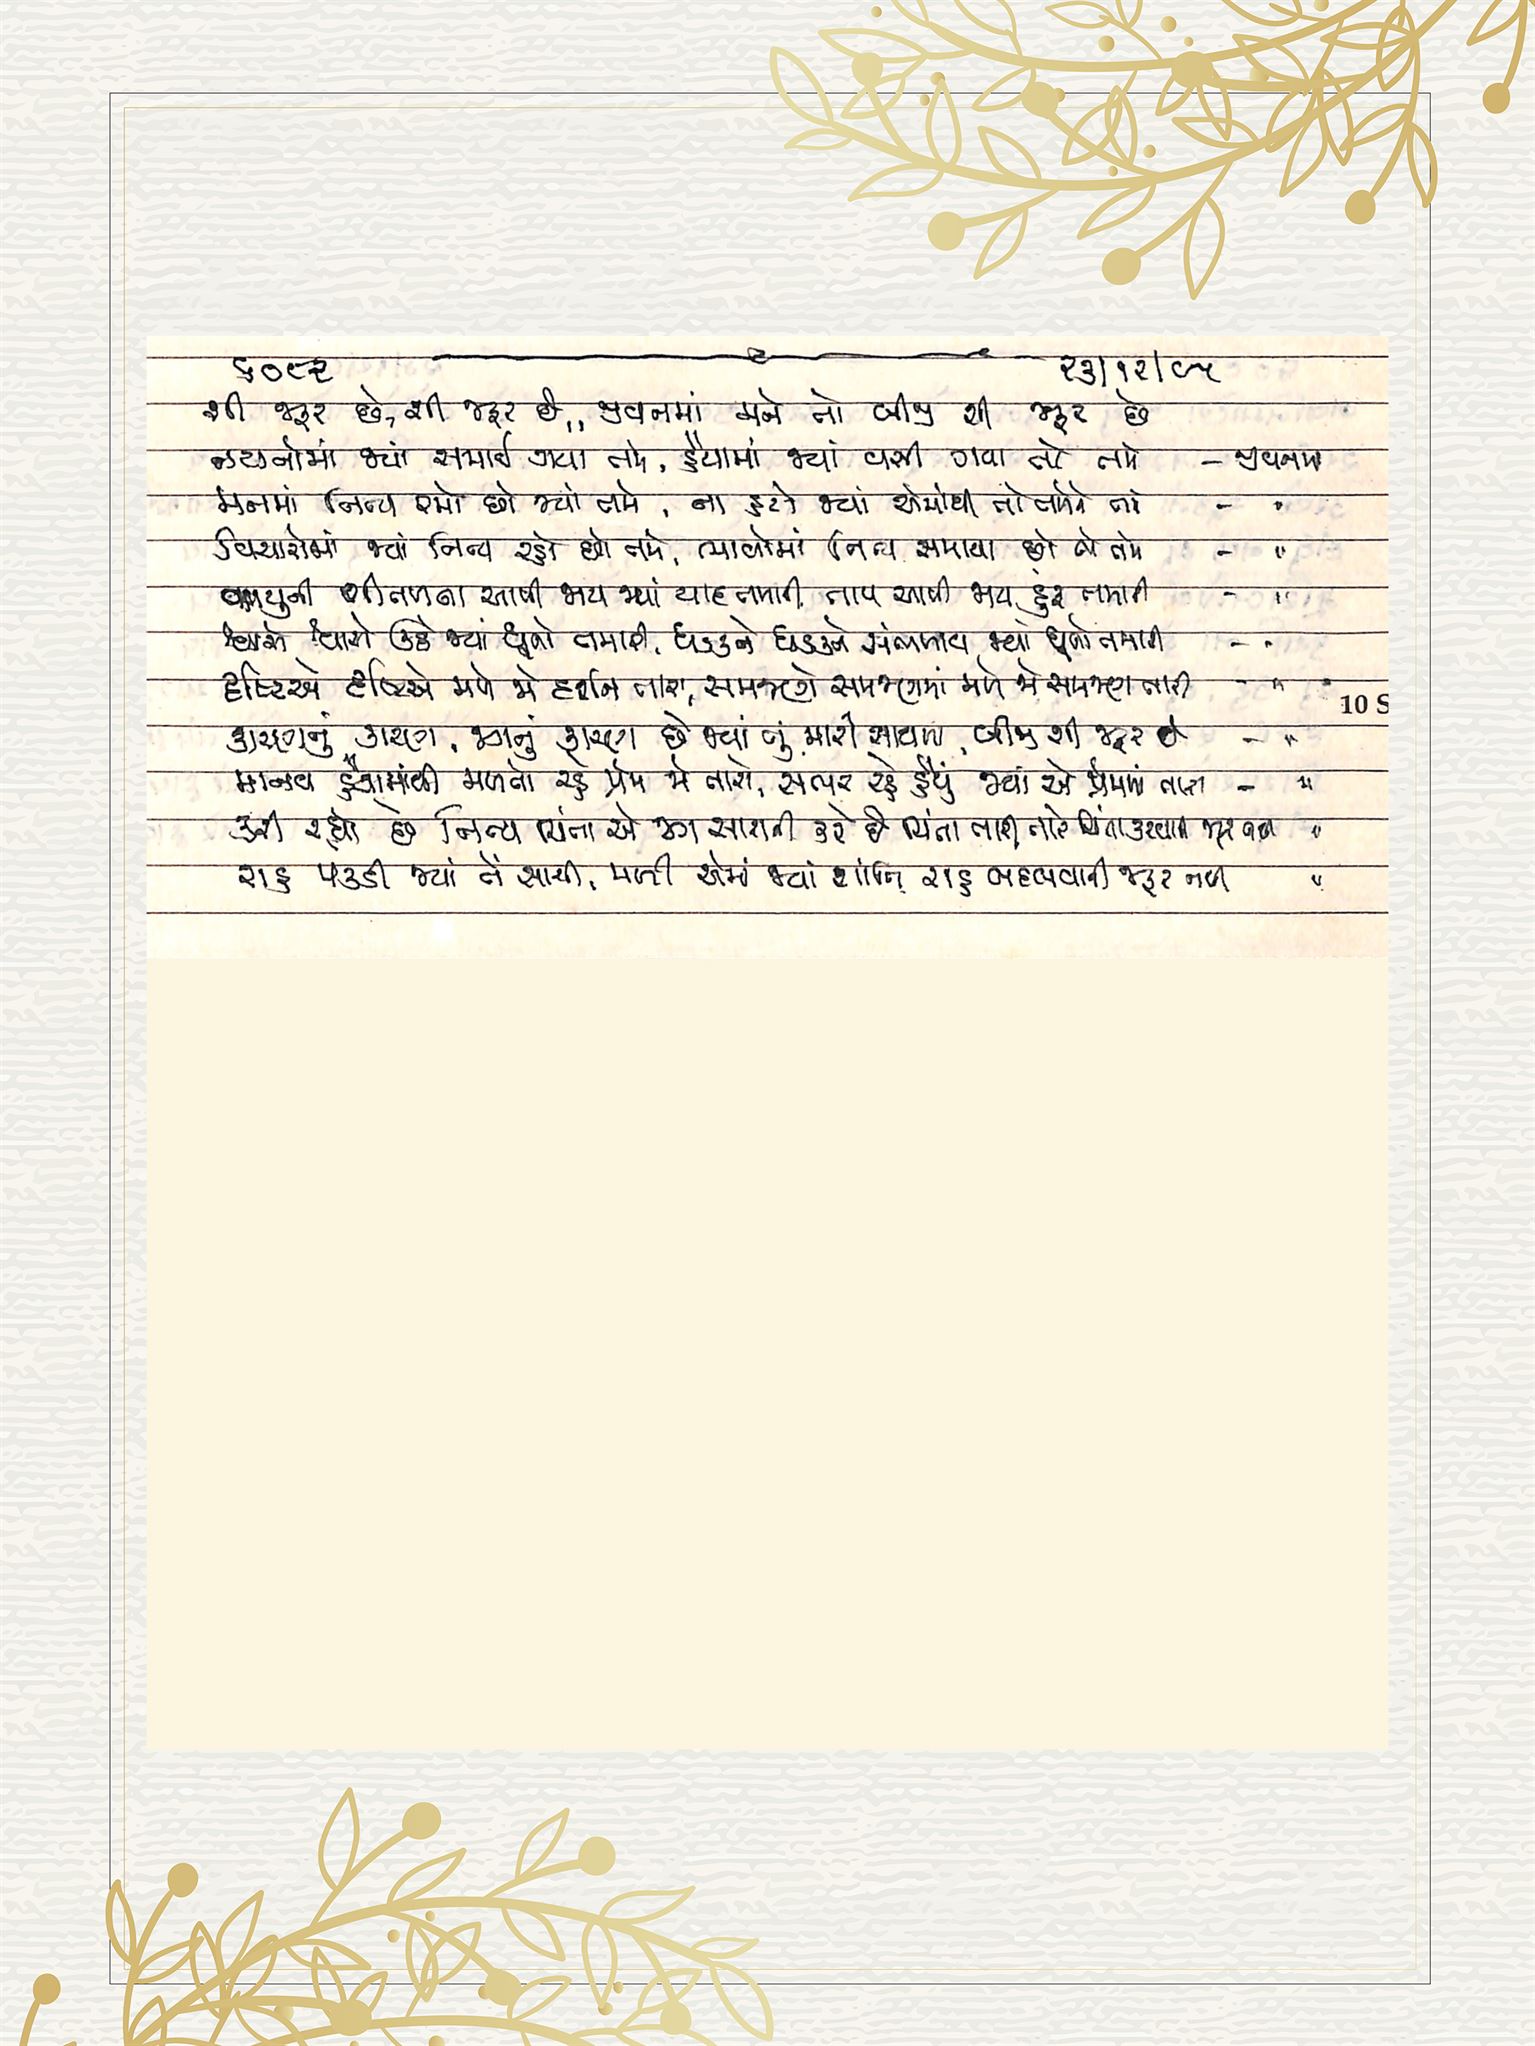 ૬૦૯૨ ૨૩/૧૨/૯૫
શી જરૂર છે, શી જરૂર છે,, જીવનમાં મને તો બીજી શી જરૂર છે
નયનોમાં જ્યાં સમાઈ ગયા તમે, હૈયામાં જ્યાં વસી ગયા તો તમે - જીવનમાં
મનમાં નિત્ય રમો છો જ્યાં તમે, ના હટો જ્યાં એમાંથી તો તમે તો - "
વિચારોમાં જ્યાં નિત્ય રહો છો તમે, ભાવોમાં નિત્ય સમાયા છો જે તમે - "
વાયુની શીતળતા આપી જાય જ્યાં યાદ તમારી, તાપ આપી જાય દૂર તમારી - "
શ્વાસે શ્વાસે ઉઠે જ્યાં ધૂનો તમારી, ધડકને ધડકને સંભળાય જ્યાં ધૂનો તમારી - "
દૃષ્ટિએ દૃષ્ટિએ મળે જે દર્શન તારા, સમજણે સમજણમાં મળે જે સમજણ તારી - "
10 S
કારણનું કારણ, જગનું કારણ છે જ્યાં તું મારી સાથમાં, બીજી શી જરૂર છે - "
માનવ હૈયામાંથી મળતો રહે પ્રેમ જે તારો, તત્પર રહે હૈયું જ્યાં એ પ્રેમમાં તારા - "
કરી રહ્યો છે નિત્ય ચિંતા એ જગ સારાની કરે છે ચિંતા તારી તારે ચિંતા કરવાની જરૂર નથી "
રાહ પકડી જ્યાં તેં સાચી, મળી એમાં જ્યાં શાંતિ રાહ બદલવાની જરૂર નથી "